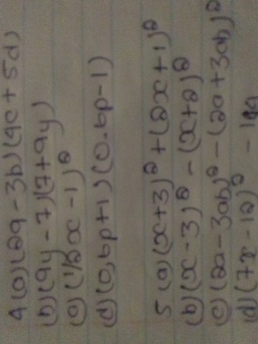 4 (a) (2a - 3b)(4c + 5d)
(b) (9y - 7)(7 + 9y)
(c) (1/2 x - 1)²
(d) (0,6p + 1)(0,6p - 1)
5 (a) (x + 3)² + (2x + 1)²
(b) (x - 3)² - (x + 2)²
(c) (2a - 3ab)² - (2a + 3ab)²
(d) (7x - 12)² -